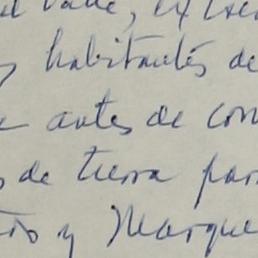 el Valle,
y habitantes de
antes de con
de tierra par
y Marque